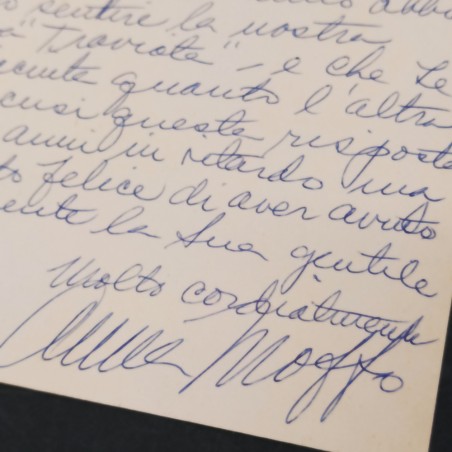 sentire la nostra
"Traviata", e che Le
quanto l'altra
scusi questa risposta
anni in ritardo ma
felice di aver avuto
la Sua gentile
Molto cordialmente
Anna Moffo